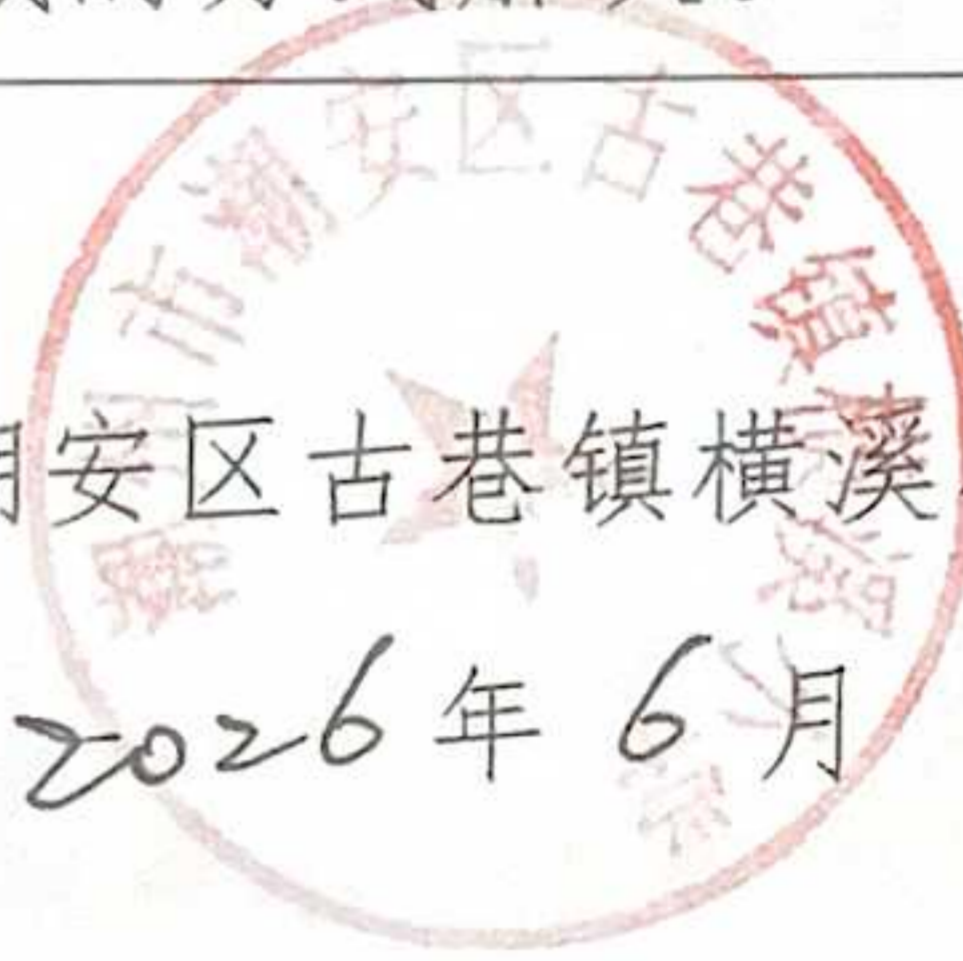 潮州市潮安区古巷镇横溪
安区古巷镇横溪
2026年6月